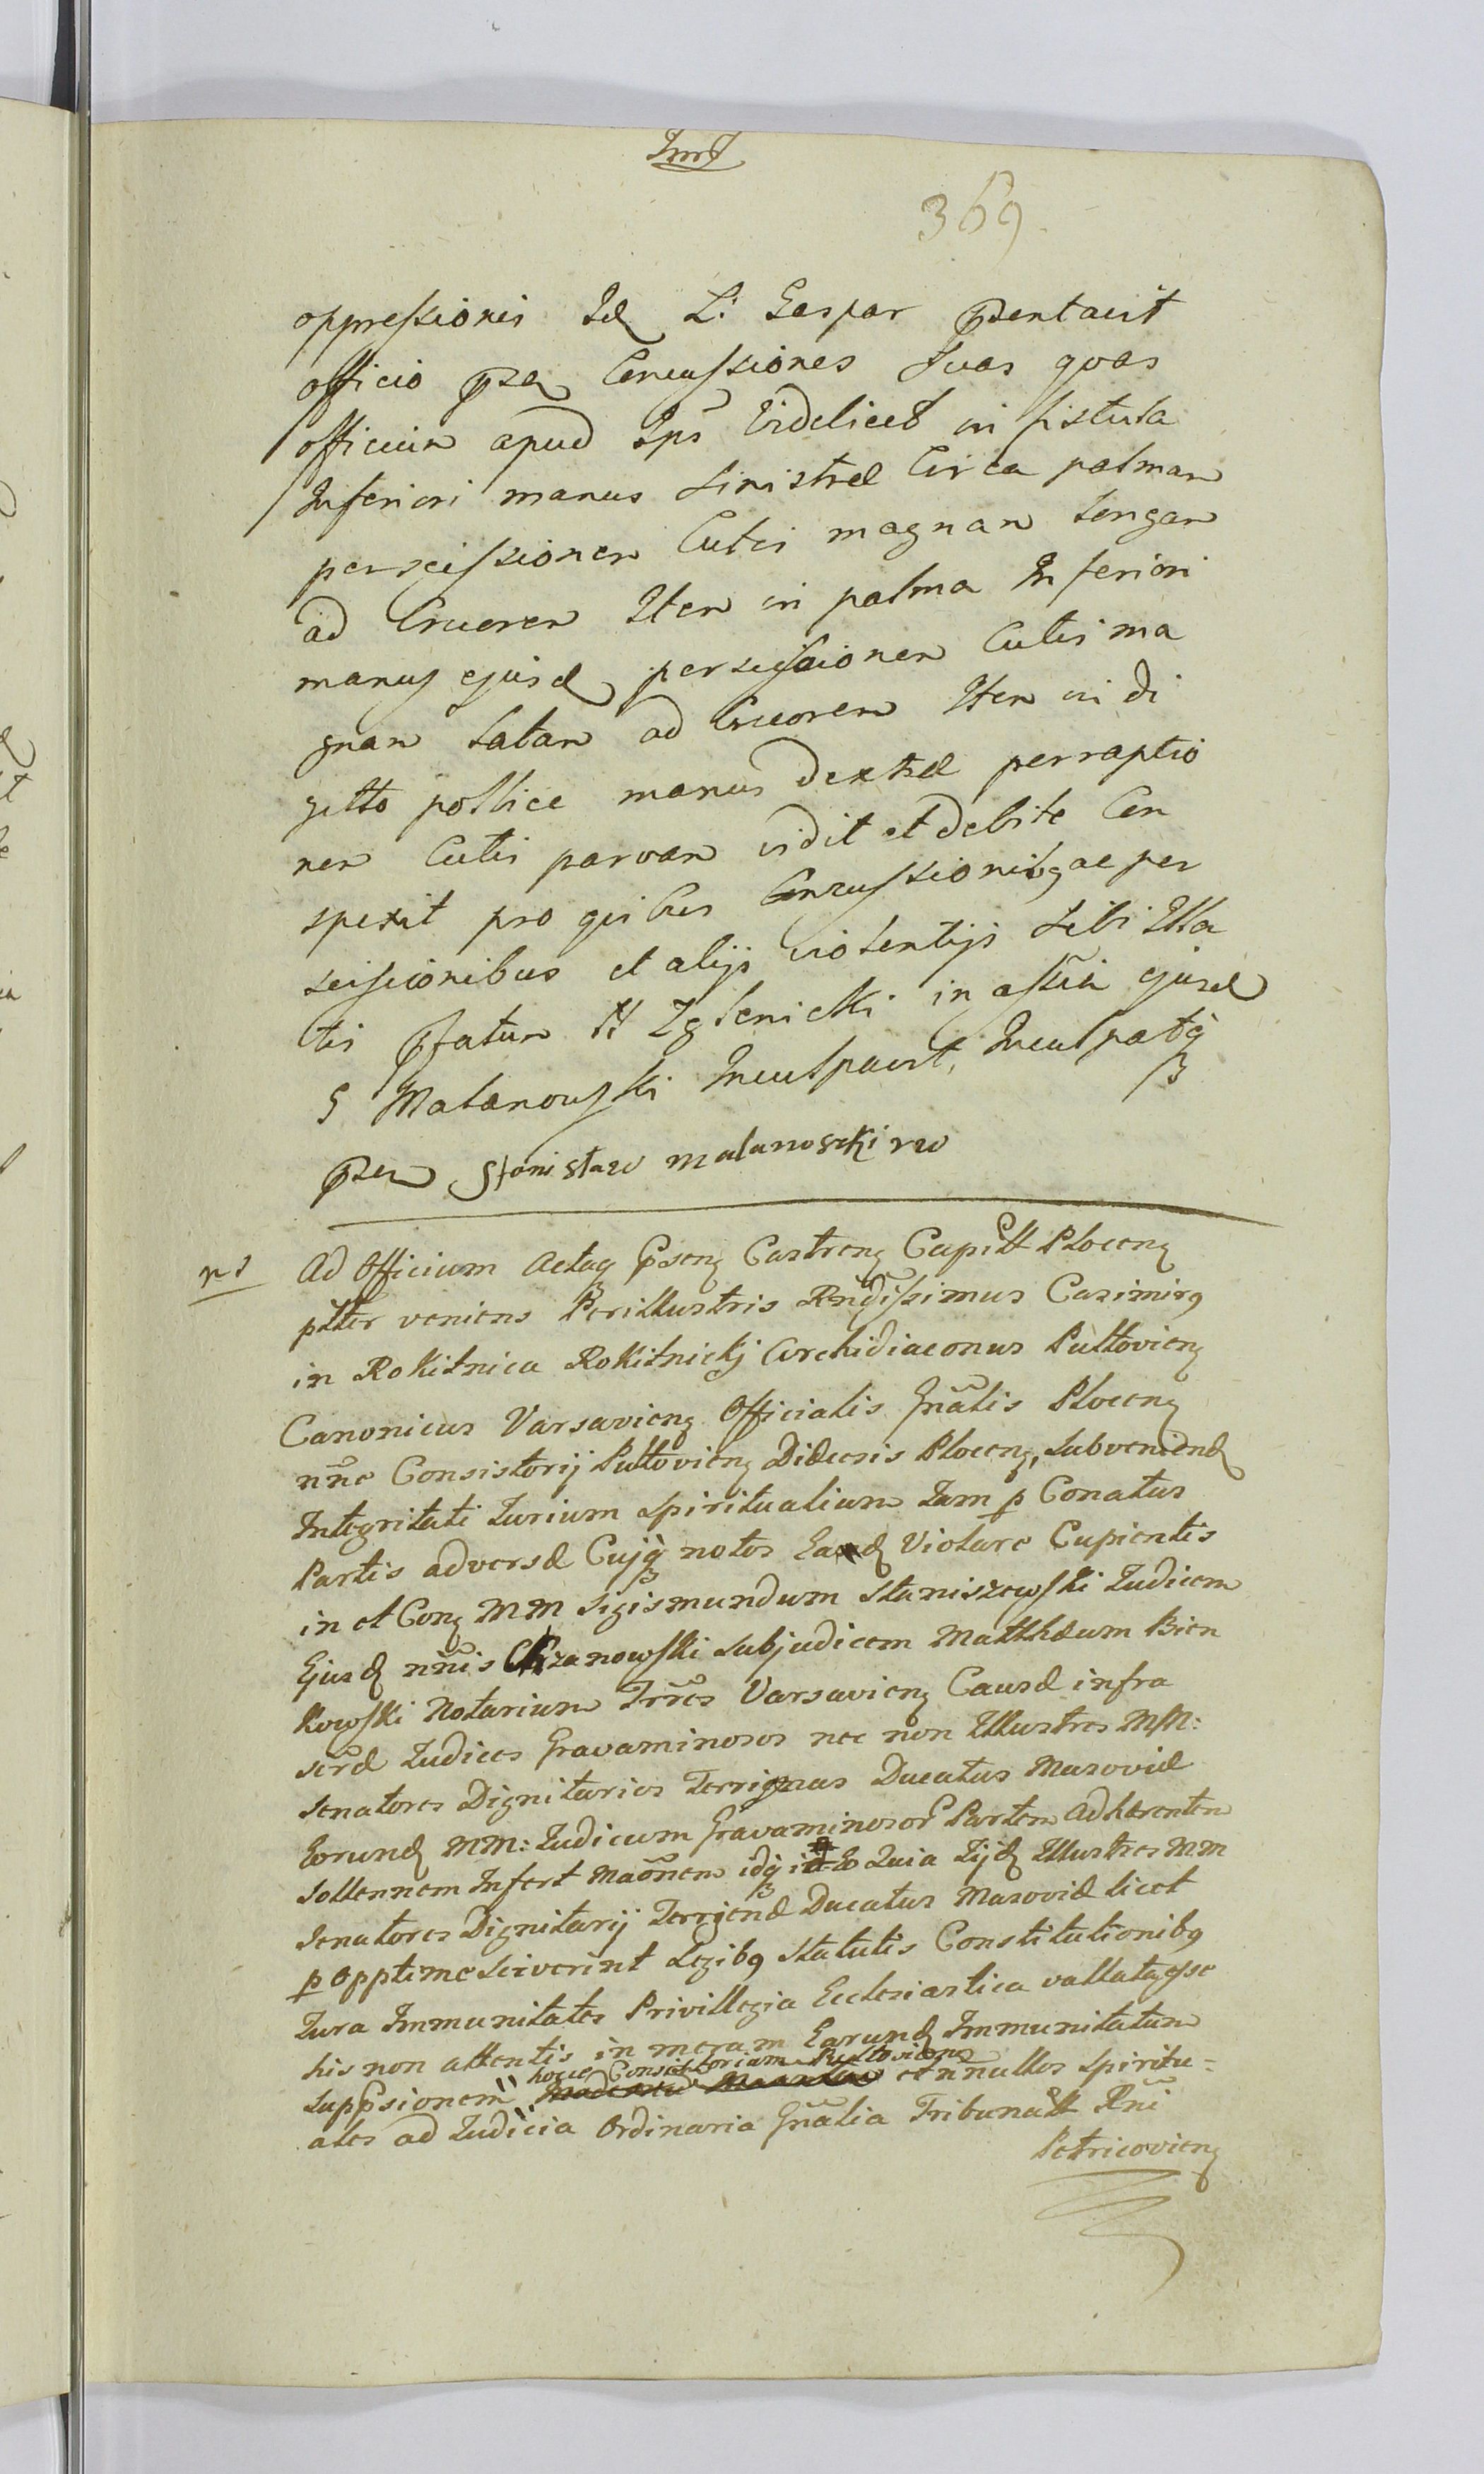 369
oppressionis Id L: Gaspar pntavit
officio pza Concussiones suas quas
officium apud Ips Videlicet in fistula
Inferiori manus sinistræ Circa palmam
perscissionem Cutis magnam longam
ad Cruorem Item in palma Inferiori
manus ejusd perscissionem Cutis ma
gnam latam ad Cruorem Item in di
gitto pollice manus dextræ perraptio
nem Cutis parvam vidit et debite Con
spexit pro quibus Concussionibq ac per
scissionibus et alijs violentijs sibi Illa
tis pfatum N Zglenicki in assia ejusd
G Malanowski Inculpavit, Inculpatq
pzen Stanisław malanoszki rw
n 1
Ad Officium Actaq psenq Castrenq Capitt Plocenq
ptter veniens Perillustris Rndissimus Casimirq
in Rokitnica Rokitnickj Archidiaconus Pultovienq
Canonicus Varsavienq Officialis Gnalis Plocenq
nnc Consistorij Pultovienq Diæcesis Plocenq, subveniend
Integritati Jurium spiritualium Jam p Conatus
Partis adversæ Cujq notos Eand Violare Cupientis
in et Conq MM Sigismundum Staniszewski Judicem
Ejusd nnis Chrzanowski Subjudicem Matthæum Bien
kowski Notarium Trres Varsavienq Causæ infra
scræ Judices Gravaminosos nec non Illustres MM:
Senatores Dignitarios Terrigenas Ducatus Masoviæ
Eorund MM: Judicum Gravaminosor Partem Adhærentem
Sollennem Infert Maonem idq id Eo Quia Iijd Illustres MM
Senatores Dignitarij Terrigenæ Ducatus Masoviæ licet
p opptime sciverint Legibq Statutis Constitutionibq
Jura Immunitates Privillegia Ecclesiastica vallata esse
his non attentis in meram Earund Immunitatum
hocce Consistorium Pultoviens
suppsionem et nnullos Spiritu=
ales ad Judicia Ordinaria Gnalia Tribunalt Rni
Petricovienq